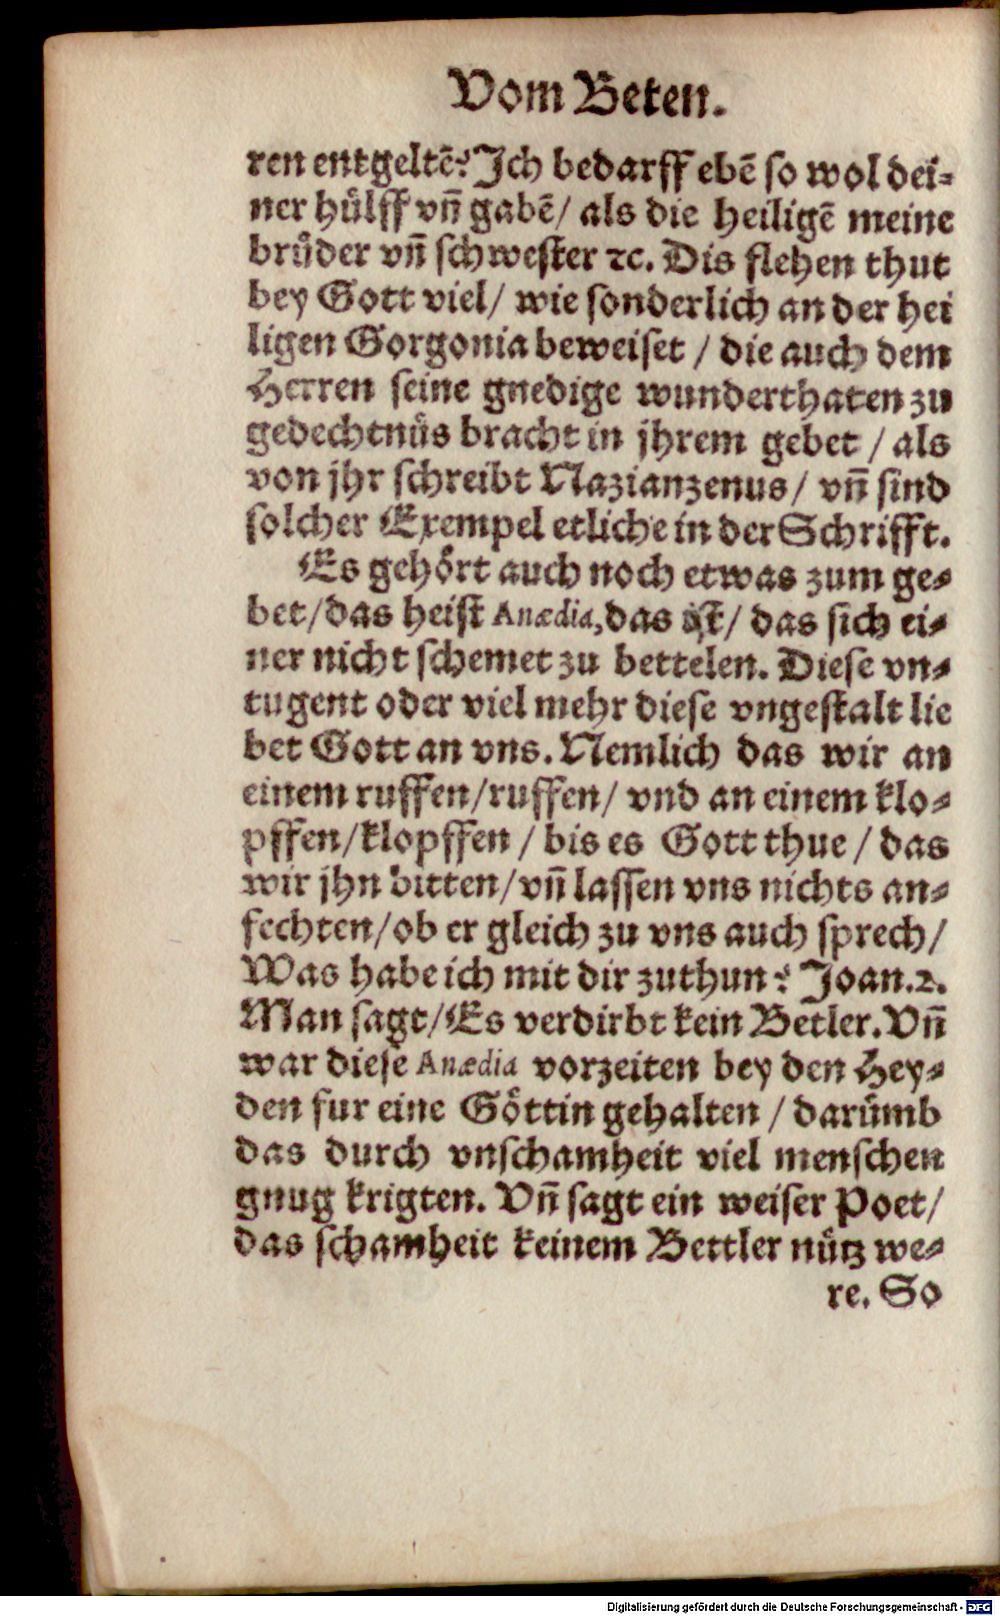 Vom Beten.
ren entgeltẽ? Ich bedarff ebẽ so wol dei=
ner hülff vñ gabẽ/ als die heiligẽ meine
brůder vñ schwester ꝛc. Dis flehen thut
bey Gott viel/ wie sonderlich an der hei
ligen Gorgonia beweiset / die auch dem
Herren seine gnedige wunderthaten zu
gedechtnüs bracht in jhrem gebet / als
von jhr schreibt Nazianzenus/ vñ sind
solcher Exempel etliche in der Schrifft.
Es gehört auch noch etwas zum ge=
bet/das heist Anædia, das ist/ das sich ei=
ner nicht schemet zu bettelen. Diese vn=
tugent oder viel mehr diese vngestalt lie
bet Gott an vns. Nemlich das wir an
einem ruffen/ruffen/ vnd an einem klo=
pffen/klopffen / bis es Gott thue / das
wir jhn bitten/vñ lassen vns nichts an=
fechten/ob er gleich zu vns auch sprech/
Was habe ich mit dir zuthun? Joan.2.
Man sagt/Es verdirbt kein Betler. Vñ
war diese Anædia vorzeiten bey den Hey=
den fur eine Göttin gehalten / darümb
das durch vnschamheit viel menschen
gnug krigten. Vñ sagt ein weiser Poet/
das schamheit keinem Bettler nütz we=
re. So
Digitalisierung gefördert durch die Deutsche Forschungsgemeinschaft - DFG